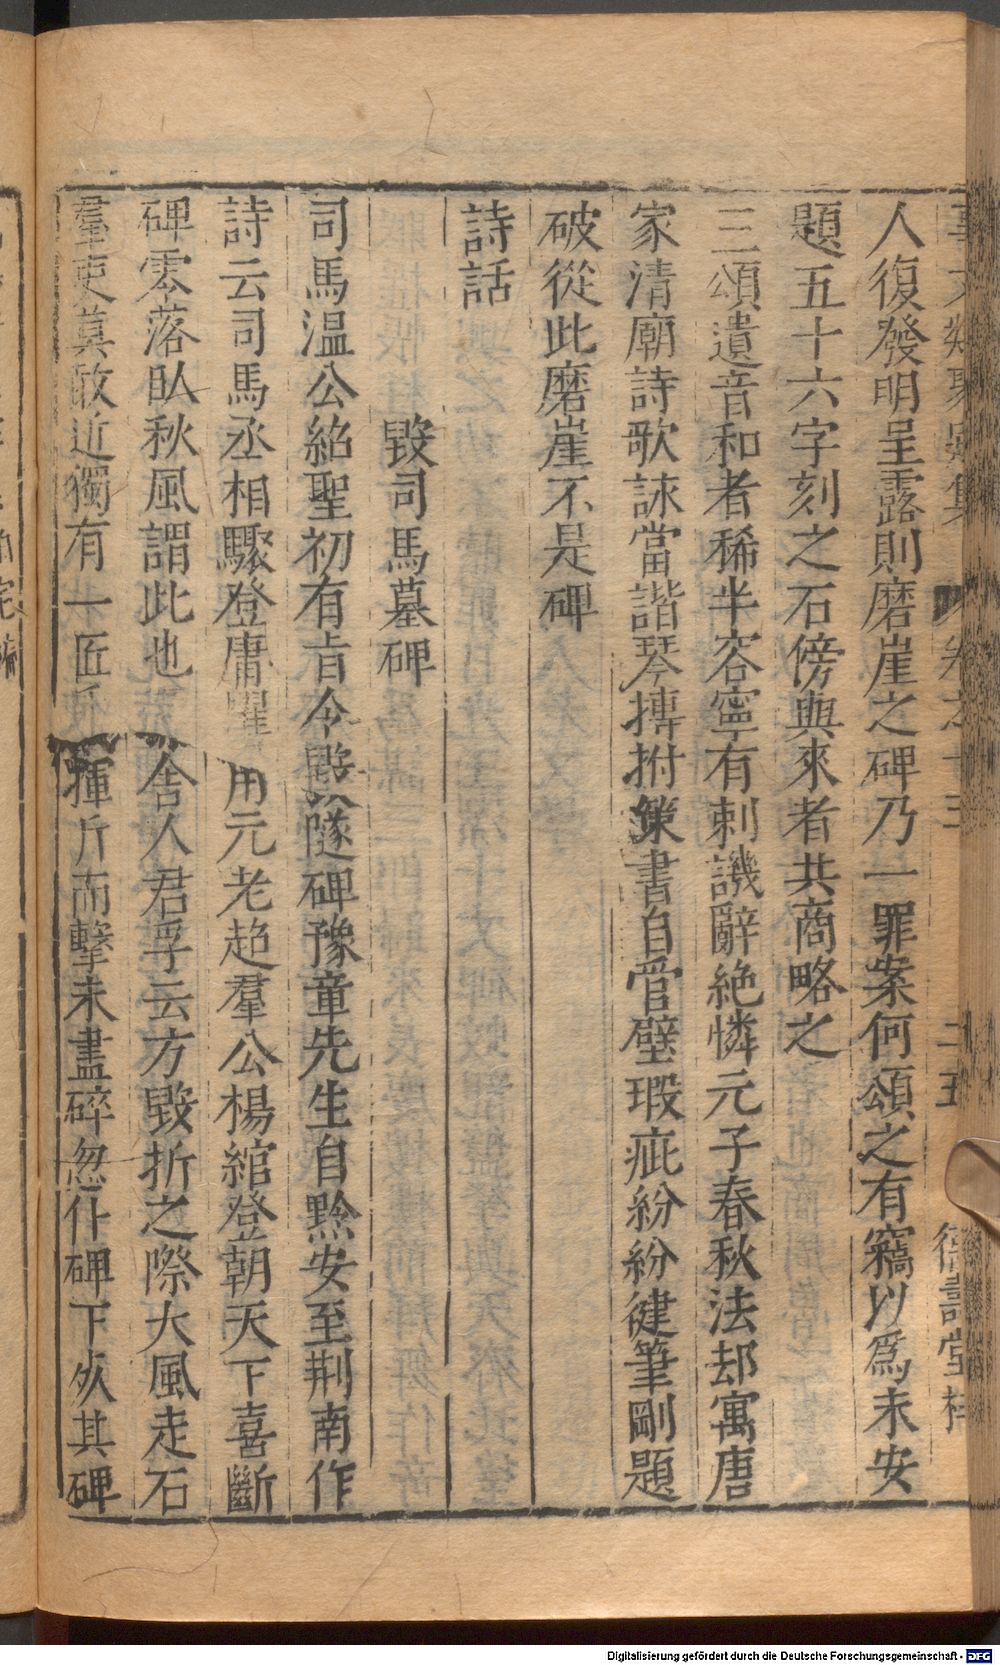 事文類聚 集 卷之十三 二五 德壽堂梓
人復發明呈露則磨崖之碑乃一罪案何頌之有竊以爲未安
題五十六字刻之石傍與來者共商略之
三頌遺音和者稀半容寧有刺譏辭絶憐元子春秋法却寓唐
家清廟詩歌誄當諧琴摶拊策書自管璧瑕疵紛紛健筆剛題
破從此磨崖不是碑
詩話
毀司馬墓碑
司馬温公紹聖初有旨令毀隧碑豫章先生自黔安至荆南作
詩云司馬丞相驟登庸 用元老超羣公楊綰登朝天下喜斷
碑零落臥秋風謂此也 舍人君孚云方毀折之際大風走石
羣吏莫敢近獨有一匠 揮斤而擊未盡碎忽仆碑下死其碑